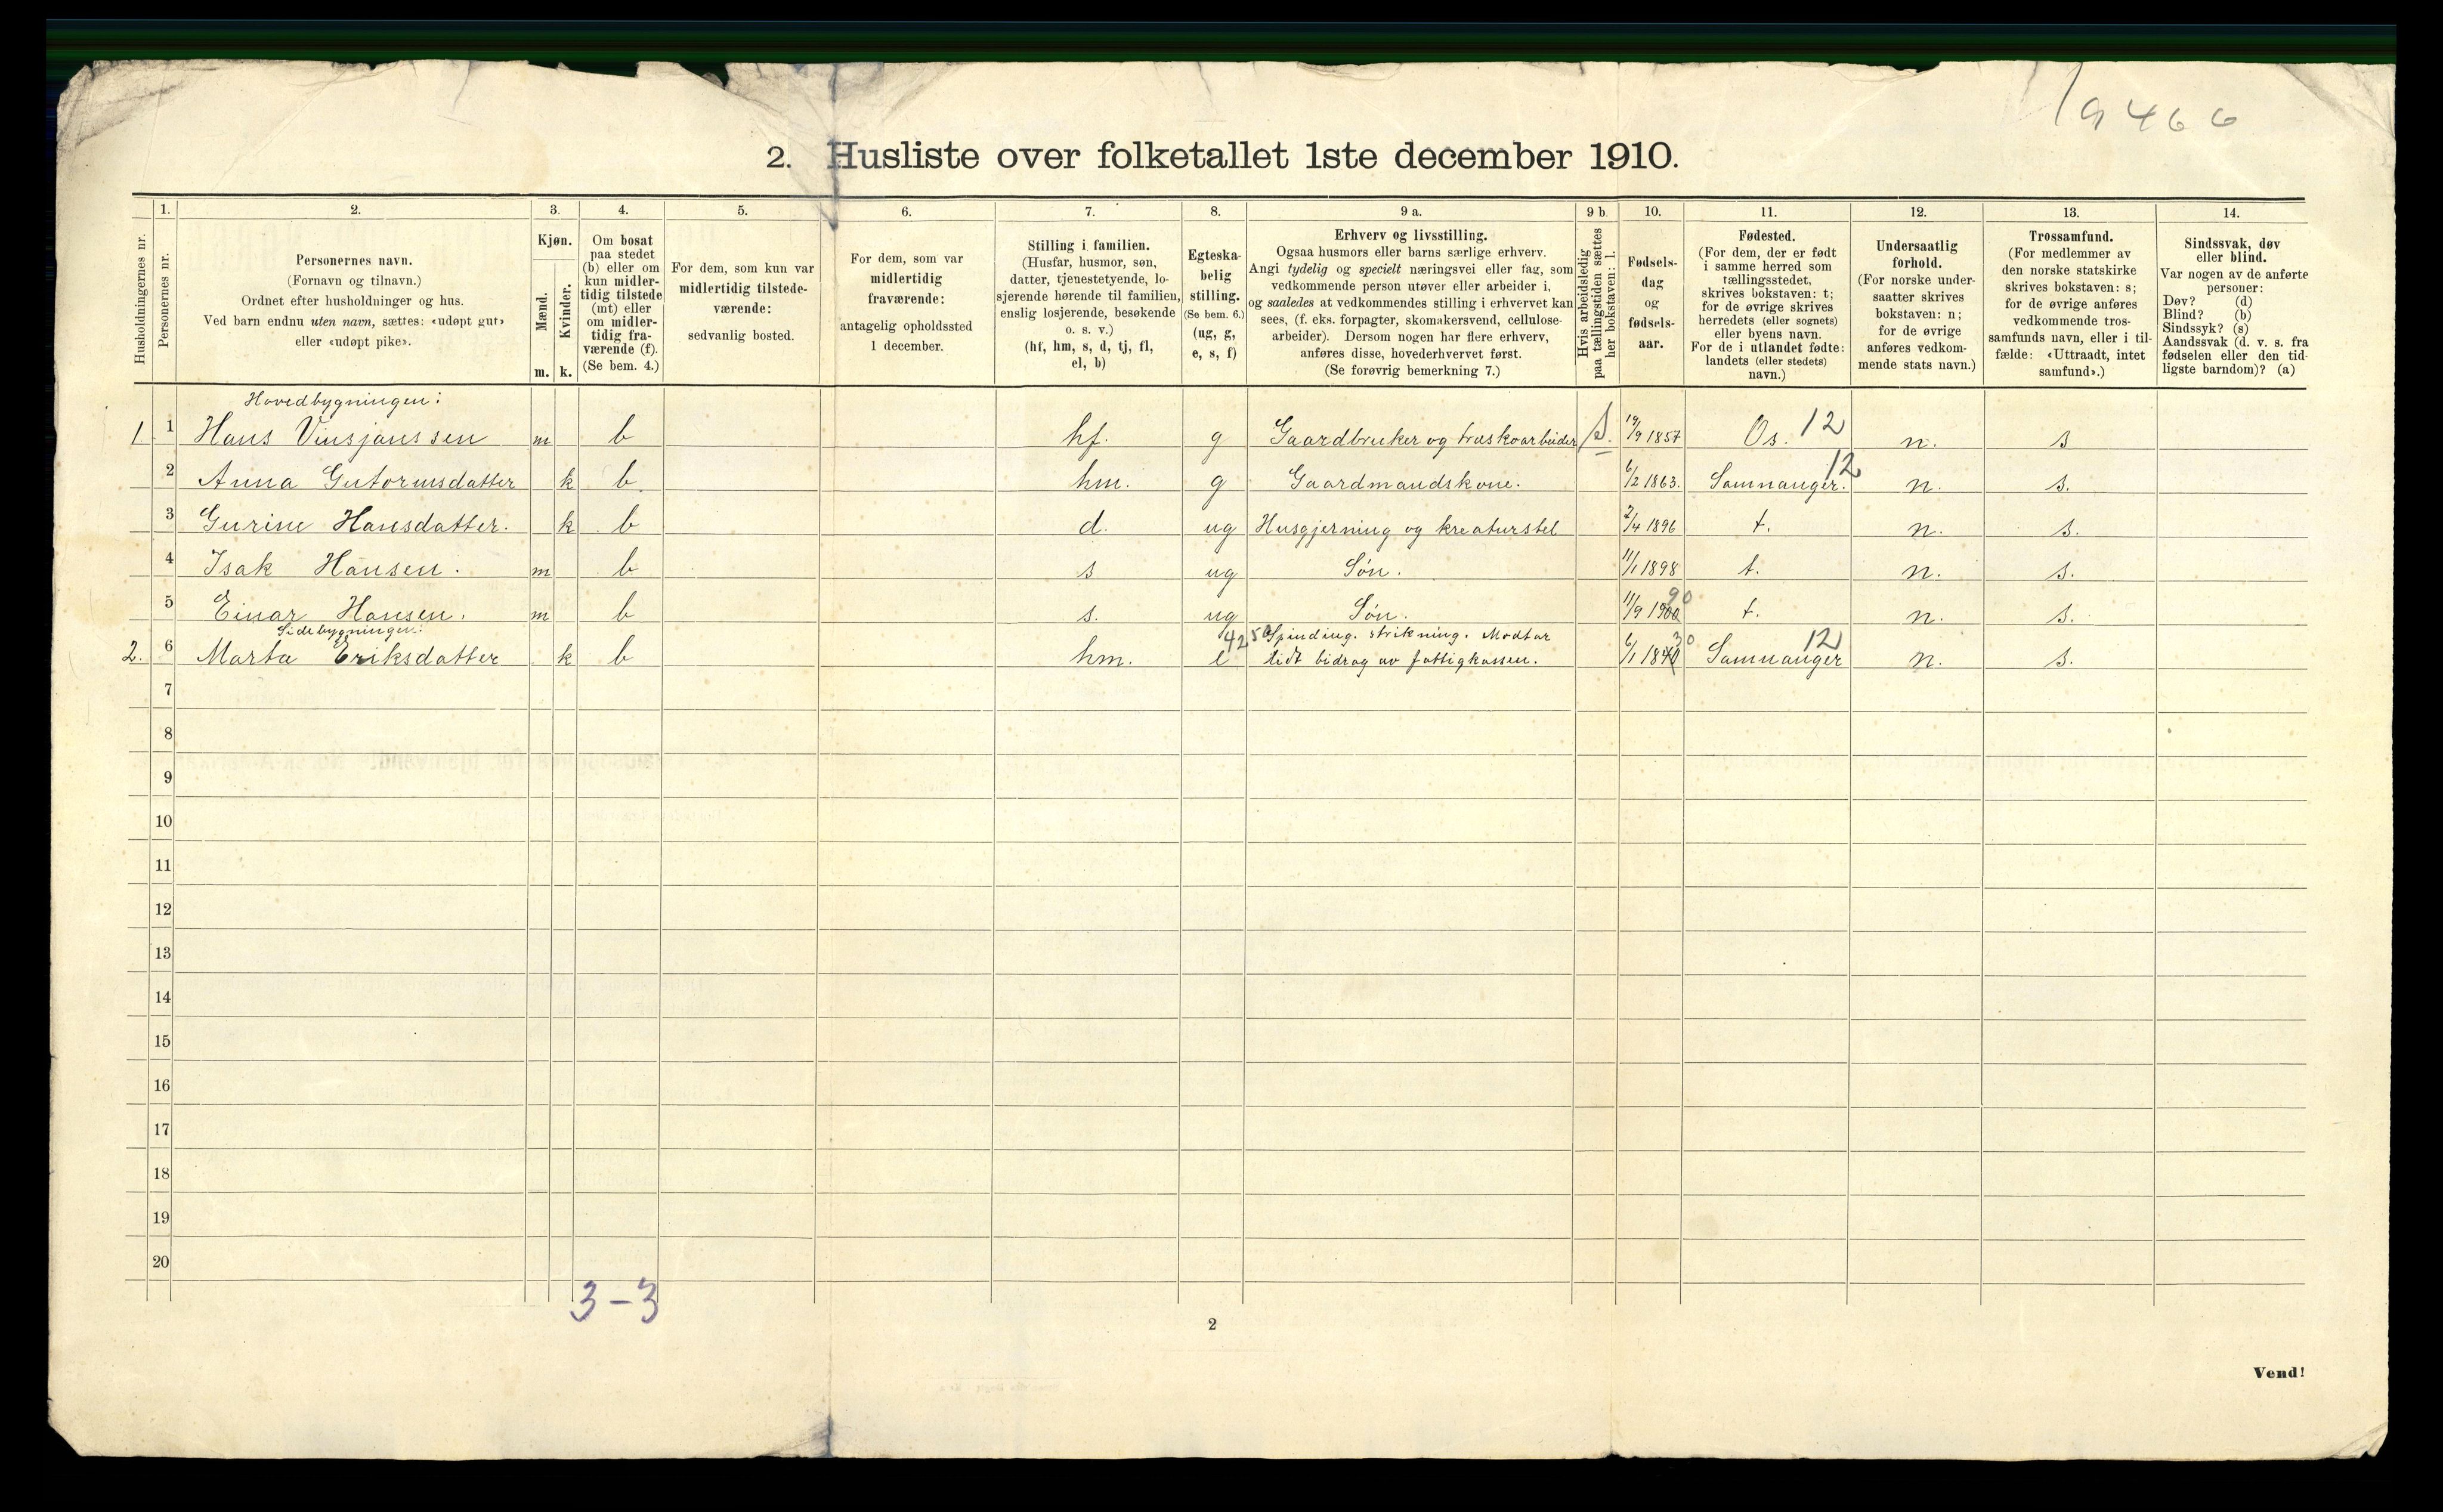 19466
2. Husliste over folketallet 1ste december 1910.
Husholdningernes nr.
1.
Personernes nr.
2.
Personernes navn.
(Fornavn og tilnavn.)
Ordnet efter husholdninger og hus.
Ved barn endnu uten navn, sættes: «udøpt gut»
eller «udøpt pike».
3.
Kjøn.
Mænd.
Kvinder.
m. k.
4.
Om bosat
paa stedet
(b) eller om
kun midler-
tidig tilstede
(mt) eller
om midler-
tidig fra-
værende (f).
(Se bem. 4.)
5.
For dem, som kun var
midlertidig tilstede-
værende:
sedvanlig bosted.
6.
For dem, som var
midlertidig
fraværende:
antagelig opholdssted
1 december.
7.
Stilling i familien.
(Husfar, husmor, søn,
datter, tjenestetyende, lo-
sjerende hørende til familien,
enslig losjerende, besøkende
o. s. v.)
(hf, hm, s, d, tj, fl,
el, b)
8.
Egteska-
belig
stilling.
(Se bem. 6.)
(ug, g,
e, s, f)
9 a.
Erhverv og livsstilling.
Ogsaa husmors eller barns særlige erhverv.
Angi tydelig og specielt næringsvei eller fag, som
vedkommende person utøver eller arbeider i,
og saaledes at vedkommendes stilling i erhvervet kan
sees, (f. eks. forpagter, skomakersvend, cellulose-
arbeider). Dersom nogen har flere erhverv,
anføres disse, hovederhvervet først.
(Se forøvrig bemerkning 7.)
9 b.
Hvis arbeidsledig
paa tællingstiden sættes
her bokstaven: l.
10.
Fødsels-
dag
og
fødsels-
aar.
11.
Fødested.
(For dem, der er født
i samme herred som
tællingsstedet,
skrives bokstaven: t;
for de øvrige skrives
herredets (eller sognets)
eller byens navn.
For de i utlandet fødte:
landets (eller stedets)
navn.)
12.
Undersaatlig
forhold.
(For norske under-
saatter skrives
bokstaven: n;
for de øvrige
anføres vedkom-
mende stats navn.)
13.
Trossamfund.
(For medlemmer av
den norske statskirke
skrives bokstaven: s;
for de øvrige anføres
vedkommende tros-
samfunds navn, eller i til-
fælde: «Uttraadt, intet
samfund».)
14.
Sindssvak, døv
eller blind.
Var nogen av de anførte
personer:
Døv? (d)
Blind? (b)
Sindssyk? (s)
Aandssvak (d. v. s. fra
fødselen eller den tid-
ligste barndom)? (a)
Hovedbygningen:
1. 1 Hans Vinsjanssen m b hf. g Gaardbruker og træskoarbeider S. 19/9 1857 Os. 12 n. s
2 Anna Gutormsdatter k b hm. g Gaardmandskone. 6/2 1863. Samnanger. 12 n. s.
3 Gurine Hansdatter. k b d. ug Husgjerning og kreaturstel 2/4 1896 t. n. s.
4 Isak Hansen. m b s ug Søn. 11/1 1898 t. n. s.
5 Einar Hansen. m b s. ug Søn. 11/9 1900 90 t. n. s.
Sidebygningen: 4250 Spinding. strikning. Modtar
2. 6 Marta Eriksdatter k b hm. e lidt bidrag av fattigkassen. 6/1 1840 30 Samnanger 12 n. s.
7
8
9
10
11
12
13
14
15
16
17
18
19
20
3-3
2
Vend!